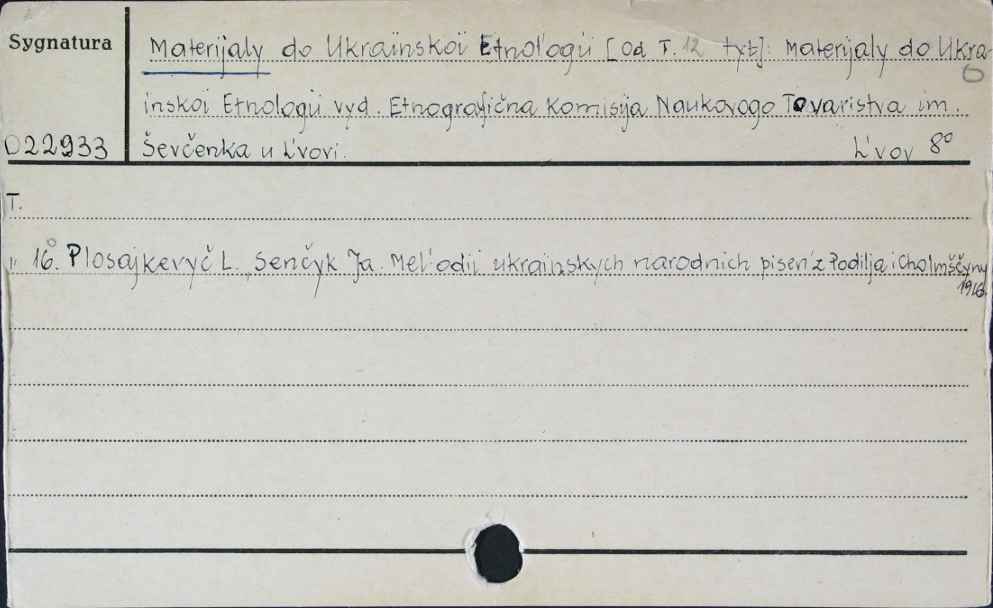 Sygnatura
Materijaly do Ukraïnskoï Etnol'ogiï [od T. 12 tyt]: Materijaly do Ukra-
ïnskoï Etnologiï vyd. Etnografična Komisija Naukovogo Tovaristva im.
022933 Ševčenka u L'vovi. L'vov 8°
T.
" 16. Plosajkevyč L., Senčyk Ja. Mel'odiï ukraïnskych narodnich pisen' z Podilja i Cholmščyny
1916.